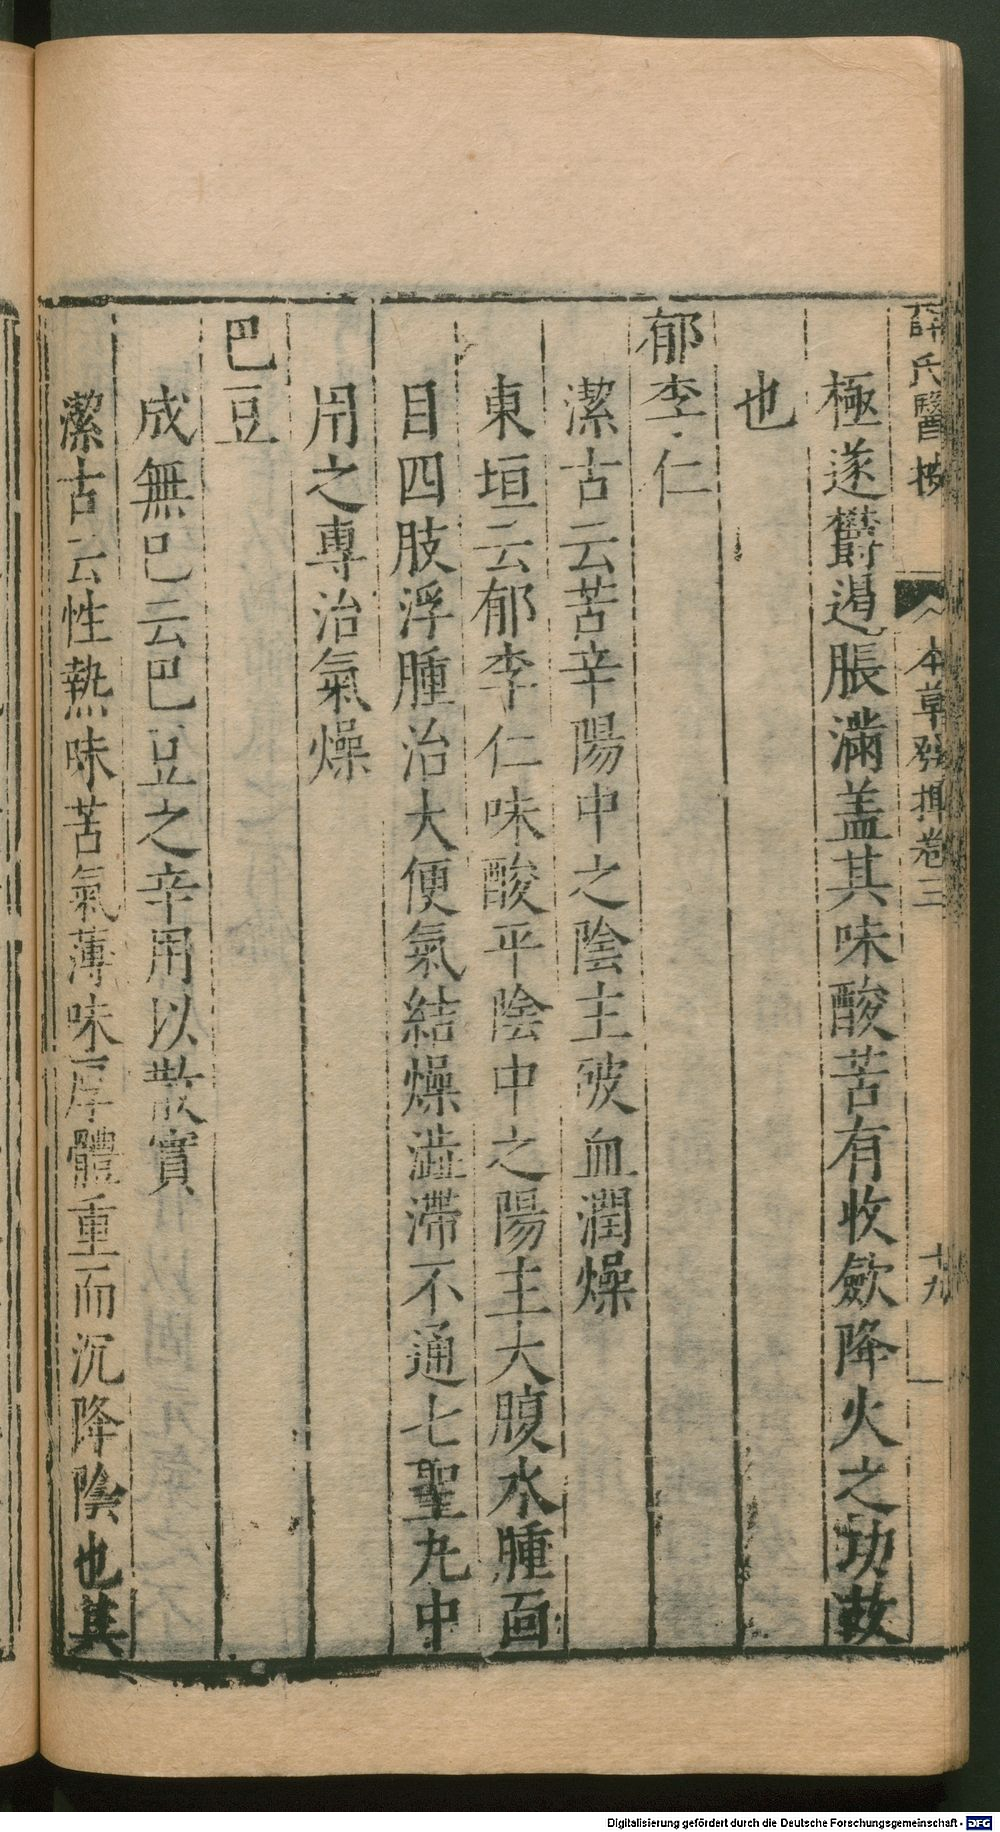 薛氏醫按 本草發揮卷三 十九
極遂欝遏脹滿盖其味酸苦有收歛降火之功故
也
郁李仁
潔古云苦辛陽中之陰主破血潤燥
東垣云郁李仁味酸平陰中之陽主大腹水腫面
目四肢浮腫治大便氣結燥澁滯不通七聖丸中
用之專治氣燥
巴豆
成無巳云巴豆之辛用以散實
潔古云性熱味苦氣薄味厚體重而沉降陰也其
Digitalisierung gefördert durch die Deutsche Forschungsgemeinschaft - DFG